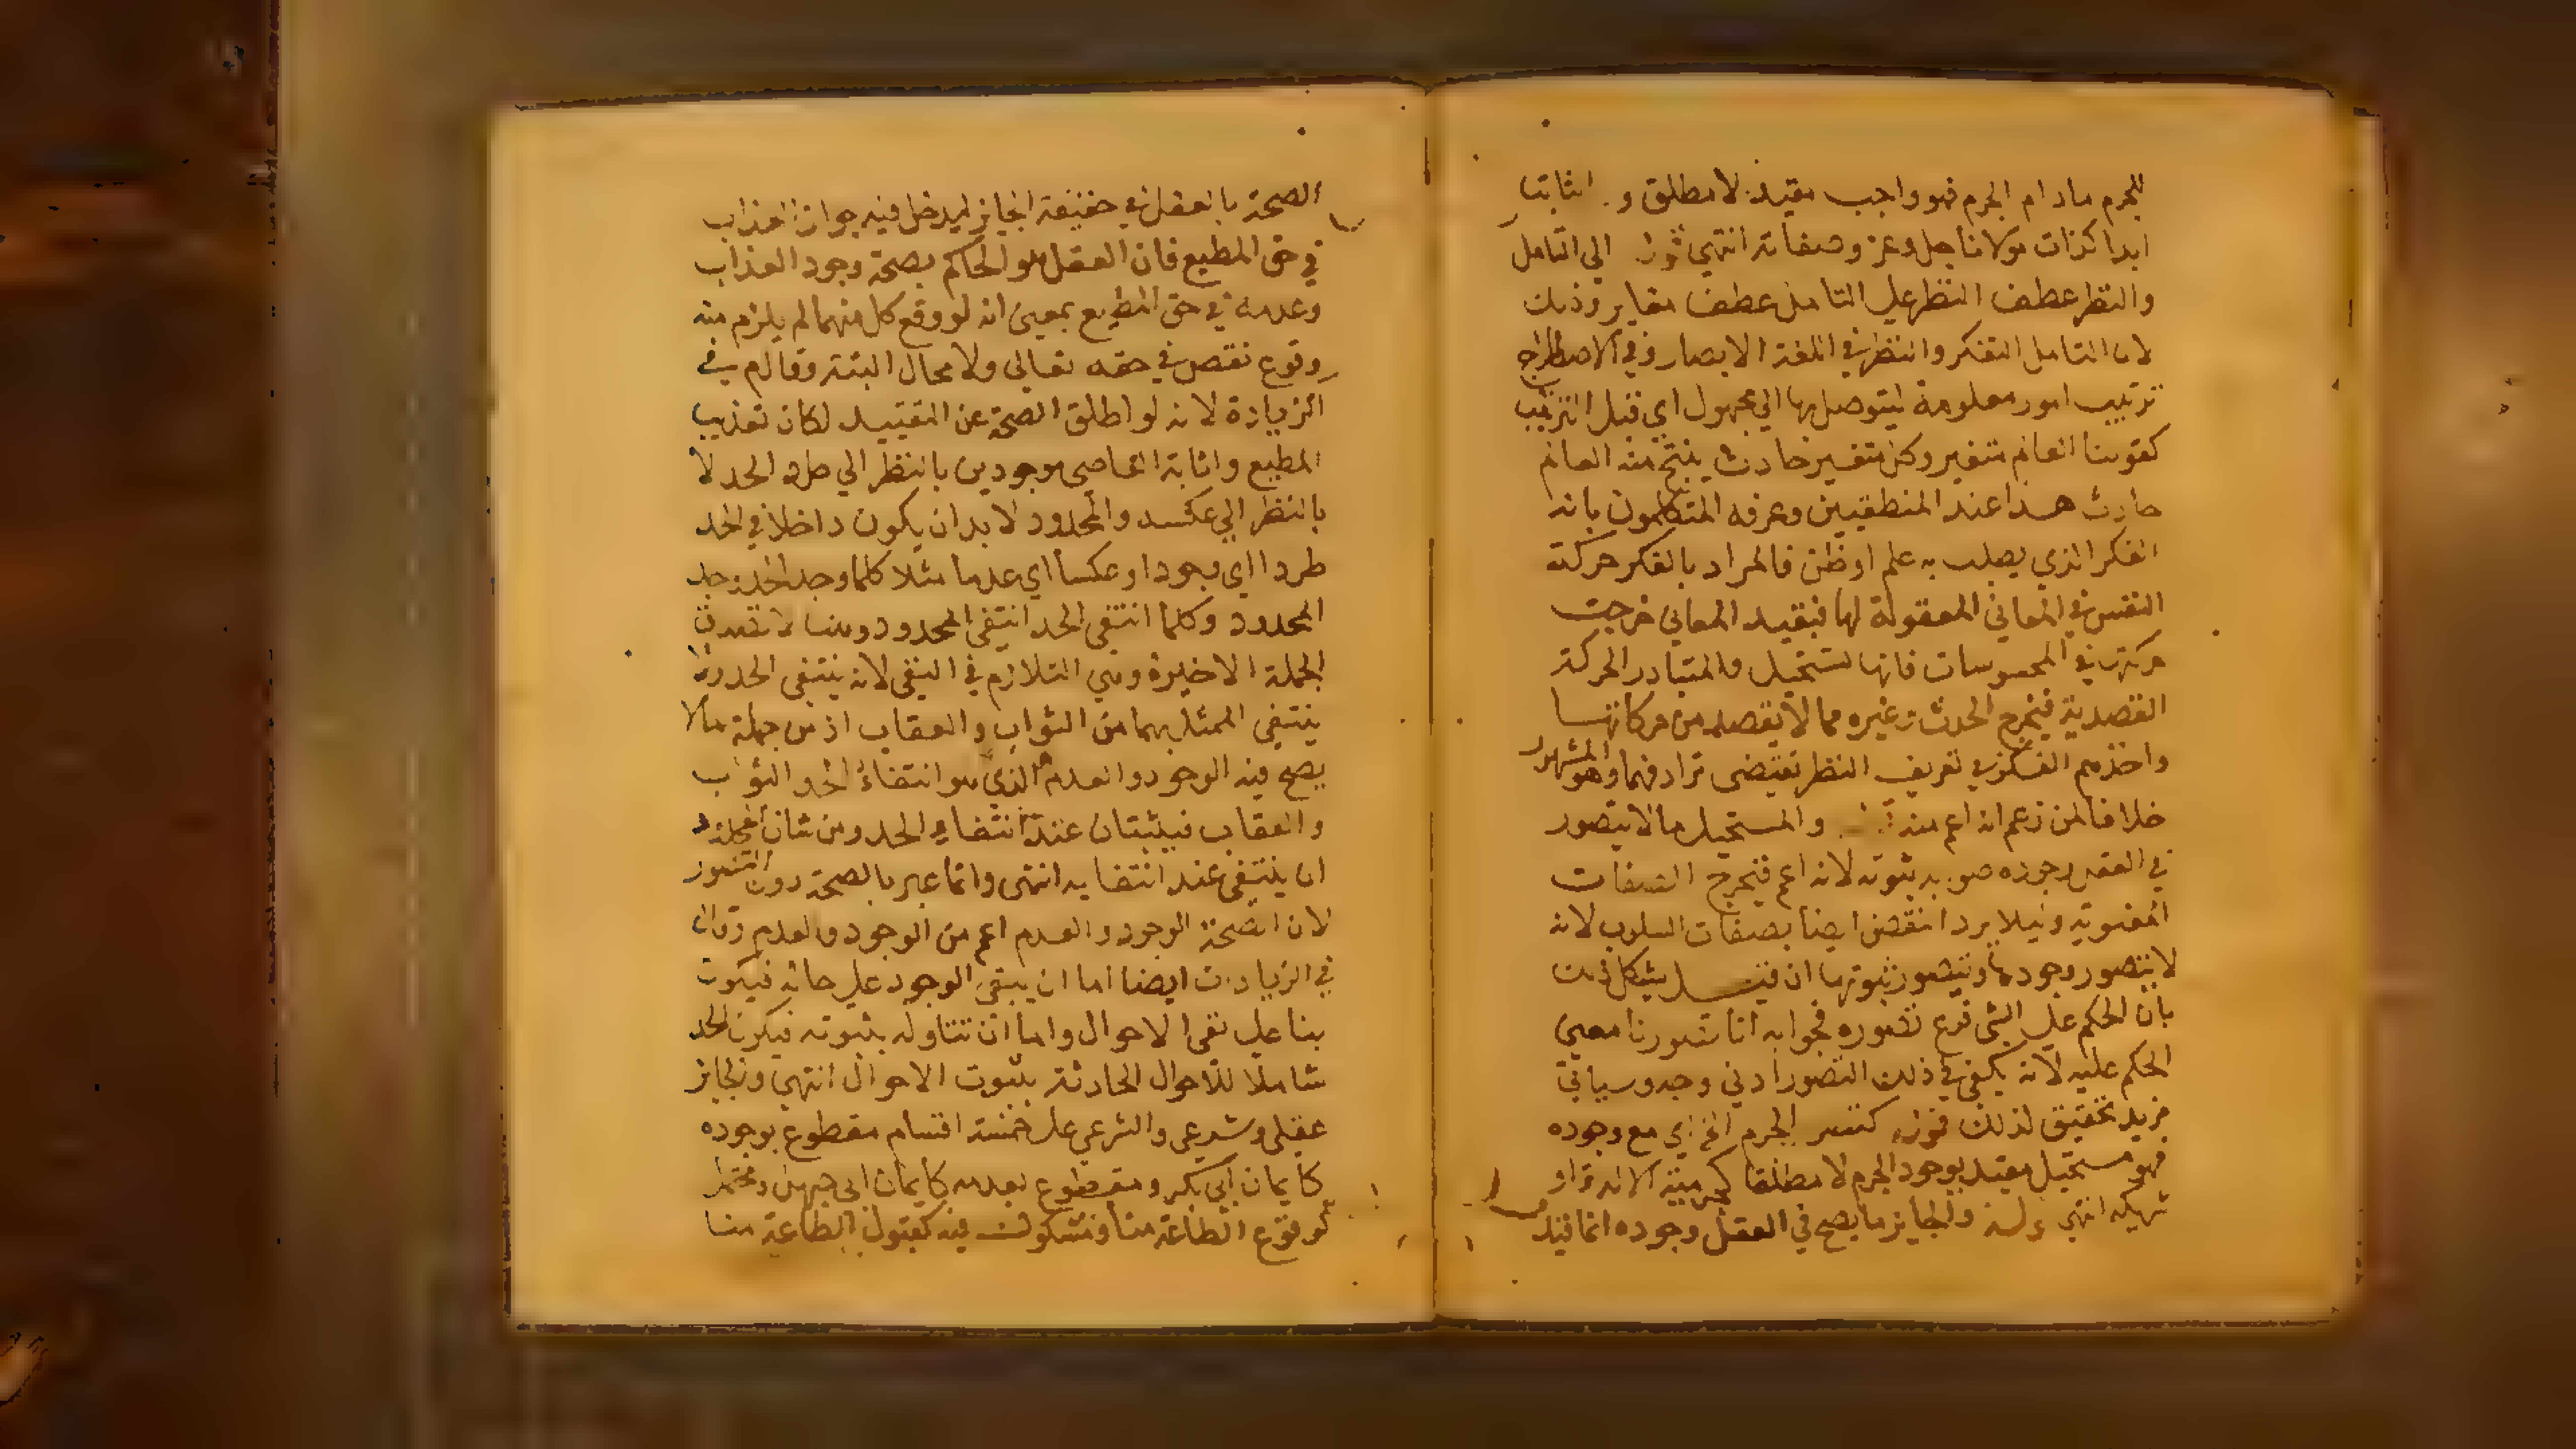 للجرم مادام الجرم فهو واجب مقيد لا مطلق و الثابت
ابدا كذات مولانا جل وعز وصفاته انتهى قوله الي التامل
والنظر عطف النظر علي التامل عطف مغاير وذلك
لان التامل التفكر والنظر في اللغة الابصار وفي الاصطلاح
ترتيب امور معلومة ليتوصل بها الي مجهول اي قبل الترتيب
كقولنا العالم متغير وكل متغير حادث ينتج منه العالم
حادث هذا عند المنطقيين وعرفه المتكلمون بانه
الفكر الذي يطلب به علم او ظن فالمراد بالفكر حركة
النفس في المعاني المعقولة لها فبقيد المعاني خرجت
حركتها في المحسوسات فانها تخييل والمتبادر الحركة
القصدية فيخرج الحدث وغيره مما لا يقصد من حركاتها
واخذهم الفكر في تعريف النظر يقتضى ترادفهما وهو المشهور
خلافا لمن زعم انه اعم منه والمستحيل ما لا يتصور
في العقل وجوده صوابه ثبوته لانه اعم فيخرج الصفات
المعنوية وليلا يرد النقض ايضا بصفات السلوب لانه
لا يتصور وجودها ويتصور ثبوتها ان قيل يشكل ذلك
بان الحكم علي الشي فرع تصوره فجوابه انا تصورنا معنى
الحكم عليه لانه يكفي في ذلك التصور ادني وجه وسياتي
مزيد تحقيق لذلك قوله الجرم اي مع وجوده
فهو مستحيل مقيد بوجود الجرم لا مطلقا
شريكه انتهى قوله والجايز ما يصح في العقل وجوده انما قيد
الصحة بالعقل في حقيقة الجايز ليدخل فيه جواز العذاب
في حق المطيع فان العقل هو الحاكم بصحة وجود العذاب
وعدمه في حق المطيع بمعنى انه لو وقع كل منهما لم يلزم منه
وقوع نقص في حقه تعالى ولا محال البتة وقالم في
الزيادة لانه لو اطلق الصحة عن التقييد لكان تعذيب
المطيع واثابة العاصي موجودين بالنظر الي طرد الحد لا
بالنظر الي عكسه والمحدود لا بد ان يكون داخلا في الحد
طردا اي وجودا وعكسا اي عدما مثلا كلما وجد الحد وجد
المحدود وكلما انتفى الحد انتفى المحدود وهنا لا تصدق
الجملة الاخيرة وهي التلازم في النفي لانه ينتفى الحد ولا
ينتفي الممثل بهما من الثواب والعقاب اذ من جملة مالا
يصح فيه الوجود والعدم الذي هو انتفاء الحد الثواب
والعقاب فيثبتان عند انتفاء الحد ومن شان المحدود
ان ينتفى عند انتفايه انتهى وانما عبر بالصحة دون التصور
لان الصحة الوجود والعدم اعم من الوجود والعدم وقال
في الزيادات ايضا اما ان يبقى الوجود علي حاله فيكون
بنا على نفي الاحوال واما ان تتناوله بثبوته فيكون الحد
شاملا للاحوال الحادثة بثبوت الاحوال انتهى والجايز
عقلي وشرعي والشرعي على خمسة اقسام مقطوع بوجوده
كايمان ابي بكر ومقطوع بعدمه كايمان ابي جهل ومحتمل
كوقوع الطاعة منا ومشكوك فيه كقبول الطاعة منا